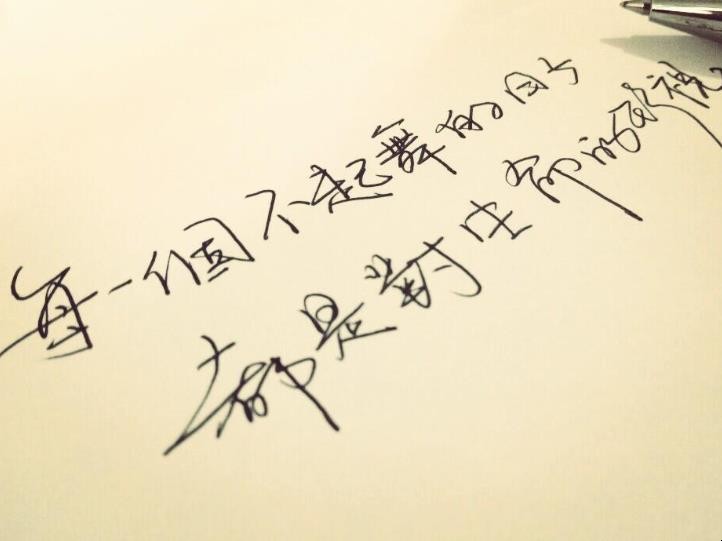 每一個不起舞的日子
都是對生命的辜負